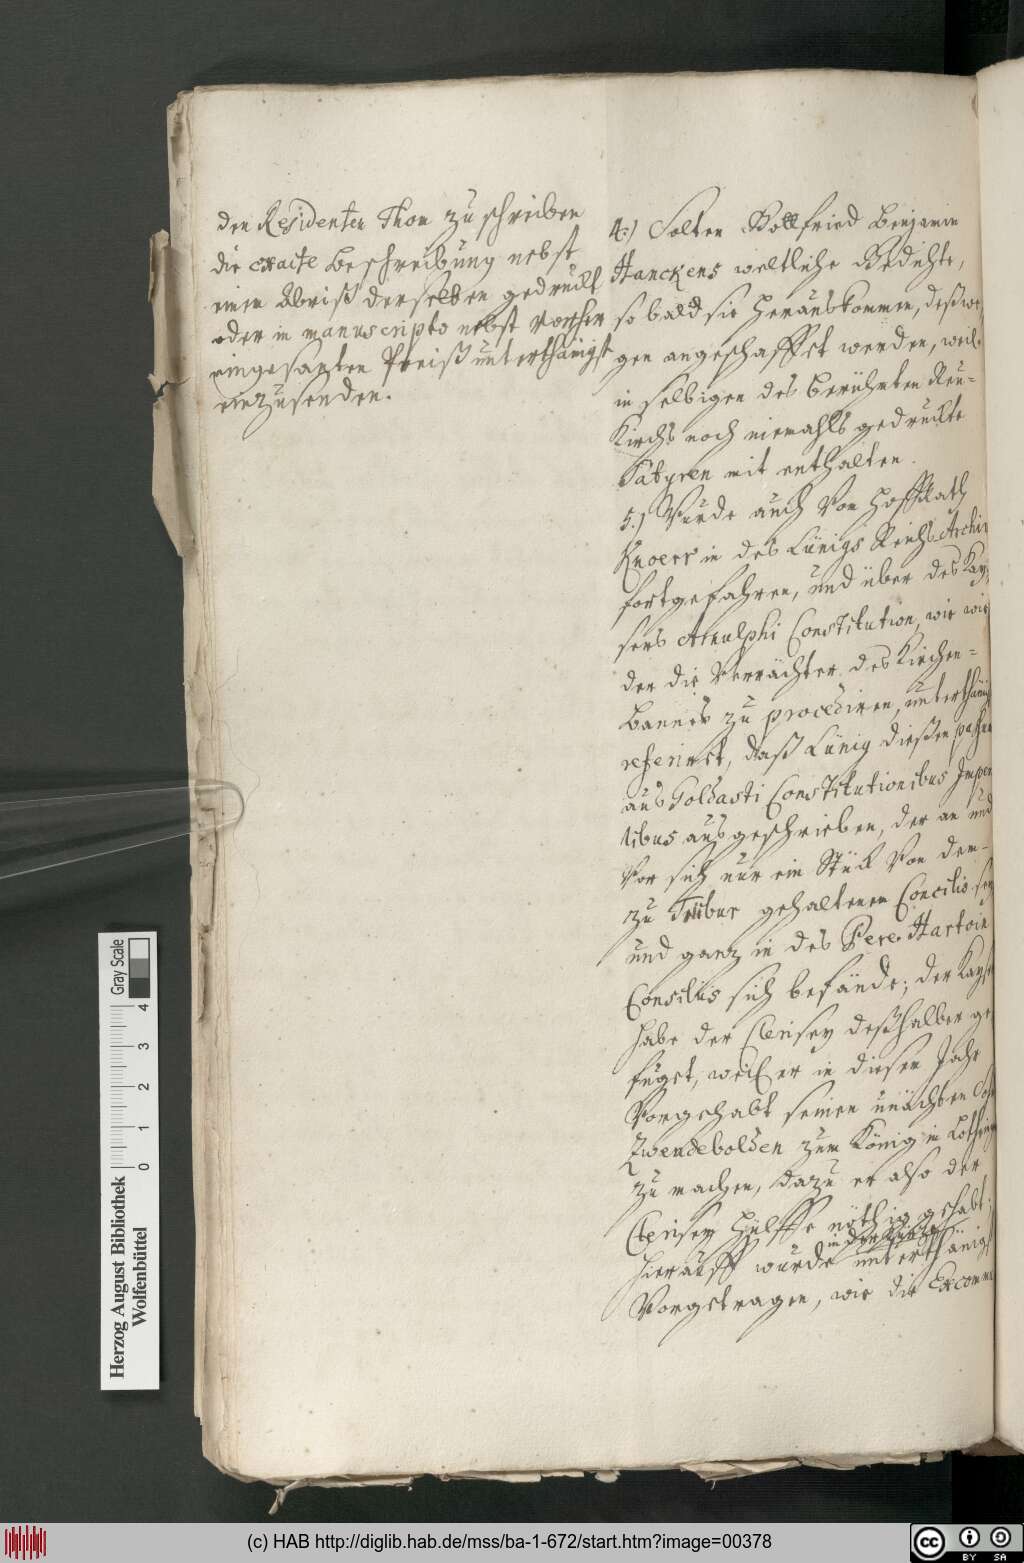 den Residenten Thom zu schreiben
die exacte Beschreibung nebst
einen Abriß derselben gedruckt
oder in manuscripto nebst vorher
eingesanten Preiß unterthänigst
einzusenden.
4.) Solten Gottfried Benjamin
Hanckens weltliche Gedichte,
so bald sie herauskommen, deßwe
gen angeschaffet werden, weil
in selbigen des berühmten Neu=
Kirchs noch niemahls gedruckte
Satyren mit enthalten.
5.) Wurde auch von HoffRath
Knoerr in des Lünigs Reichs Archiv
fortgefahren, und über des Kay
sers Arnulphi Constitution, wie wie
der die Verächter des Kirchen=
bannes zu procediren, unterthänig
referiret, daß Lünig dießen passum
aus Goldasti Constitutionibus Imper
tibus ausgeschrieben, der an und
vor sich nur ein Stück von dem
zu Tribur gehaltenen Concilio sey
und ganz in des Pere Hartoin
Consiliis sich befände; der Kayser
habe der Clerisey deßhalber ge
füget, weil er in diesem Jahr
vorgehabt seinen unächten Sohn
Zwendebolden zum König in Lothring
zu machen, dazu er also der
Clerisey Hülffe nöthig gehabt;
Hierauff wurde unterthänigst
vorgetragen, wie die Excommu
Herzog August Bibliothek
Wolfenbüttel
0 1 2 3 4
Gray Scale
(c) HAB http://diglib.hab.de/mss/ba-1-672/start.htm?image=00378
cc BY SA